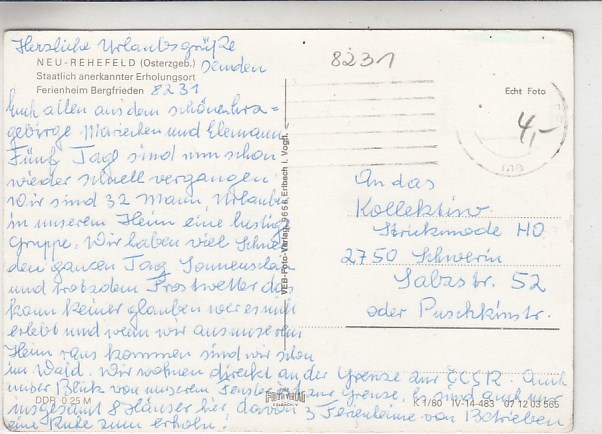 Herzliche Urlaubsgrüße
NEU-REHEFELD (Osterzgeb.)
senden
Staatlich anerkannter Erholungsort
Ferienheim Bergfrieden 8231
Euch allen aus dem schönen Erzge=
gebirge Mariechen und Ehemann
Fünf Tage sind nun schon
wieder schnell vergangen.
Wir sind 32 Mann, Urlauber
in unserem Heim eine lustige
Gruppe. Wir haben viel Schnee
den ganzen Tag Sonnenschein
und trotzdem Frostwetter das
kann keiner glauben wer es nicht
erlebt und wenn wir aus unserem
Heim raus kommen sind wir schon
im Wald. Wir wohnen direkt an der Grenze zur ČSSR. Auch
unser Blick von unserem Fenster ist zur Grenze. Es sind auch nur
insgesamt 8 Häuser hier, davon 3 Ferienheime von Betrieben
eine Ruhe zum erholen!
DDR 0.25 M
VEB-Foto-Verlag 9656 Erlbach i. Vogtl.
FOTO VERLAG
ERLBACH V.
K 1/80 IV-14-483 07 12 03 565
8231
Echt Foto
4,-
An das
Kollektiv
Strickmode HO
2750 Schwerin
Salzstr. 52
oder Puschkinstr.